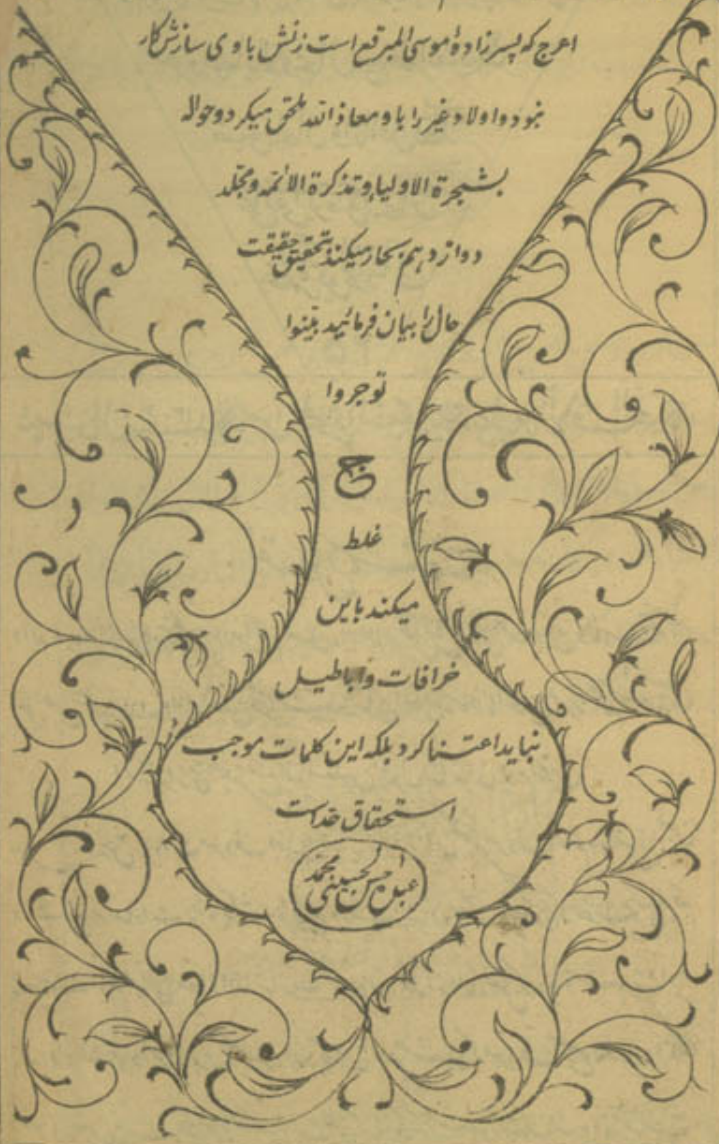 اعرج که پسرزادهٔ موسی المبرقع است زنش باوی سازش کار
نبود و اولاد غیر را باو معاذ الله ملحق میکرد و حواله
بشجرة الاولیاء و تذکرة الائمه و مجلد
دوازدهم بحار میکند تحقیق حقیقت
حال را بیان فرمائید بینوا
توجروا
ج
غلط
میکند باین
خرافات و اباطیل
نباید اعتنا کرد بلکه این کلمات موجب
استحقاق حد است
الحسینی محمد